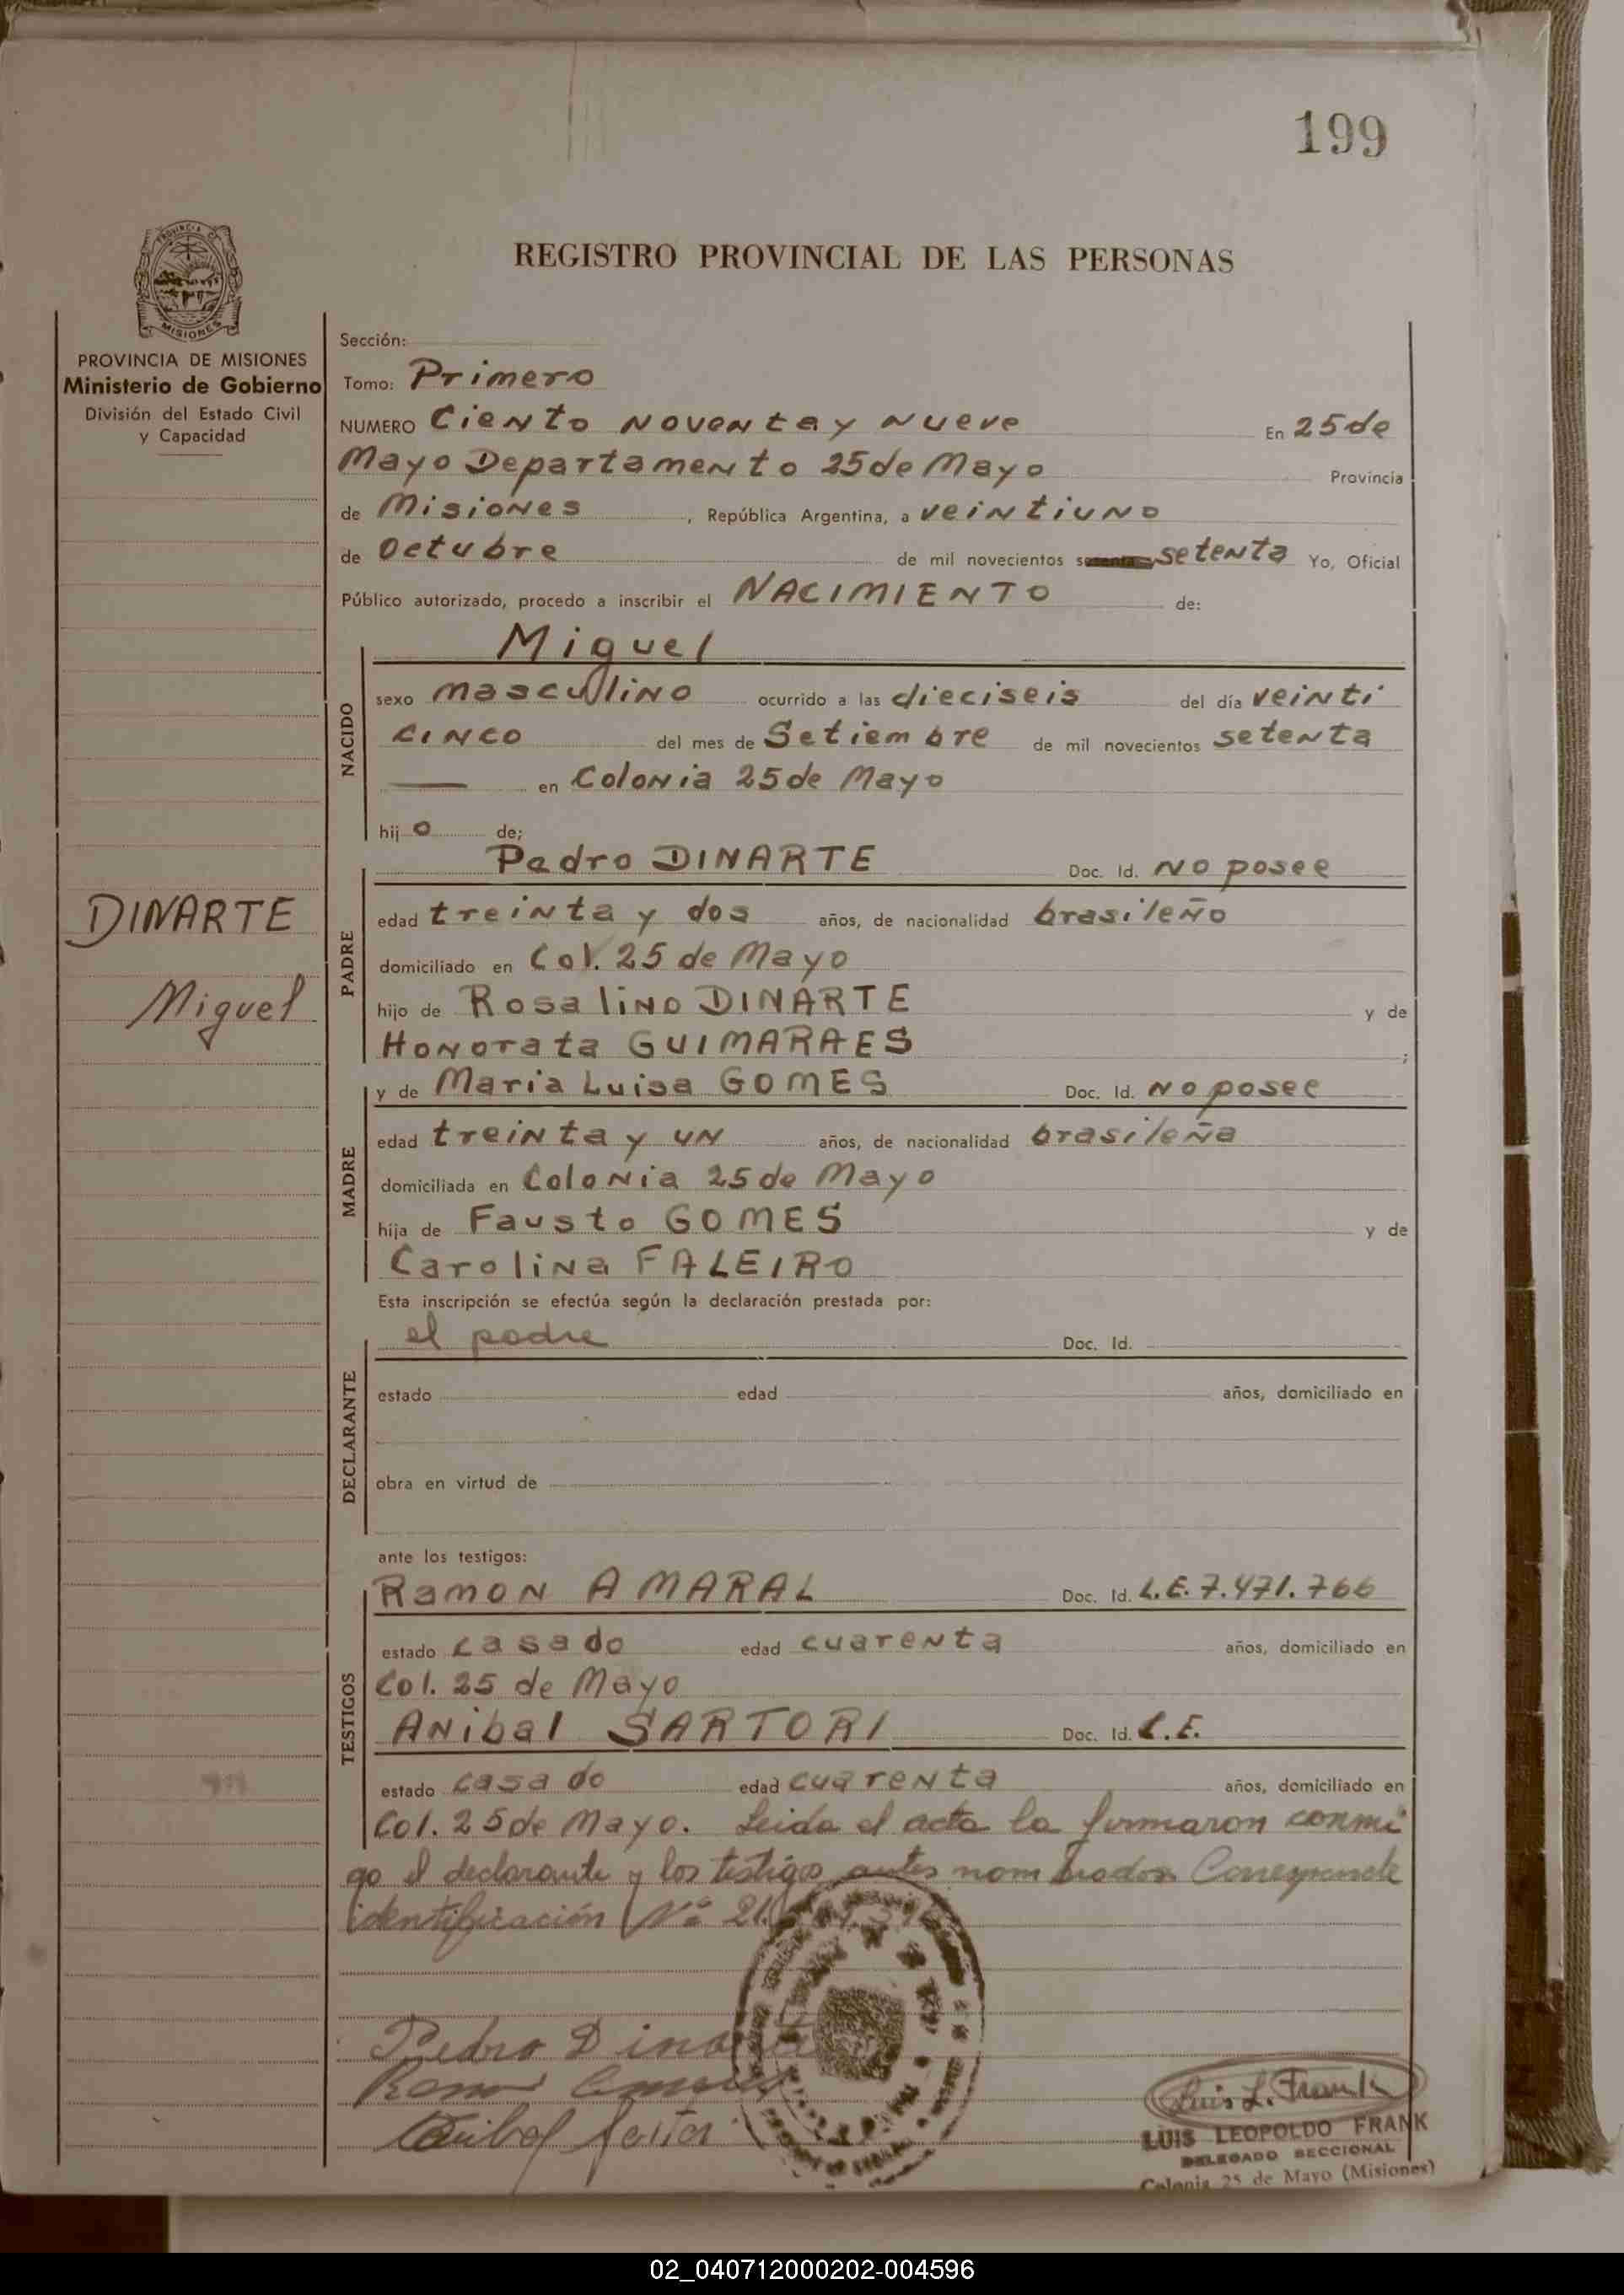 199
PROVINCIA DE MISIONES
REGISTRO PROVINCIAL DE LAS PERSONAS
PROVINCIA DE MISIONES
Ministerio de Gobierno
División del Estado Civil
y Capacidad
Sección:
Tomo: Primero
NUMERO Ciento Noventa y Nueve En 25 de
Mayo Departamento 25 de Mayo Provincia
de Misiones, República Argentina, a veintiuno
de Octubre de mil novecientos setenta Yo, Oficial
Público autorizado, procedo a inscribir el NACIMIENTO de:
Miguel
NACIDO
sexo masculino ocurrido a las dieciseis del día veinti
cinco del mes de Setiembre de mil novecientos setenta
— en Colonia 25 de Mayo
hijo de;
Pedro DINARTE Doc. Id. No posee
DINARTE
Miguel
PADRE
edad treinta y dos años, de nacionalidad brasileño
domiciliado en Col. 25 de Mayo
hijo de Rosalino DINARTE y de
Honorata GUIMARAES ;
y de Maria Luisa GOMES Doc. Id. No posee
MADRE
edad treinta y un años, de nacionalidad brasileña
domiciliada en Colonia 25 de Mayo
hija de Fausto GOMES y de
Carolina FALEIRO
Esta inscripción se efectúa según la declaración prestada por:
el padre Doc. Id.
DECLARANTE
estado edad años, domiciliado en
obra en virtud de
ante los testigos:
Ramon AMARAL Doc. Id. L.E. 7.471.766
TESTIGOS
estado casado edad cuarenta años, domiciliado en
Col. 25 de Mayo
Anibal SARTORI Doc. Id. L.E.
estado casado edad cuarenta años, domiciliado en
Col. 25 de Mayo. Leida el acta la firmaron conmi
go el declarante y los testigos antes nombrados Corresponde
identificación Nº 21.
Pedro Dinarte
Ramon Amaral
Anibal Sartori
Luis L. Frank
LUIS LEOPOLDO FRANK
DELEGADO SECCIONAL
Colonia 25 de Mayo (Misiones)
02_040712000202-004596